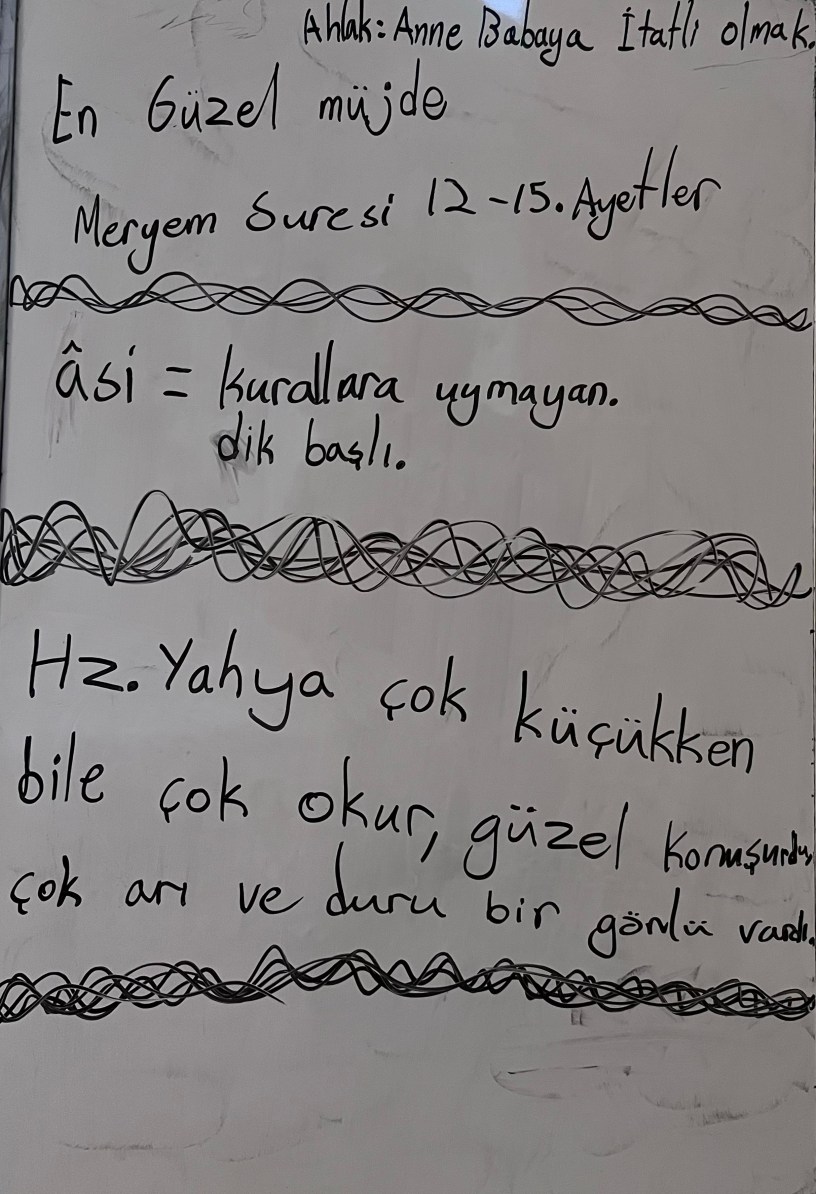 Ahlak: Anne Babaya İtatli olmak.
En Güzel müjde
Meryem Suresi 12-15. Ayetler
âsi = kurallara uymayan.
dik başlı.
Hz. Yahya çok küçükken
bile çok okur, güzel konuşurdu,
çok arı ve duru bir gönlü vardı.